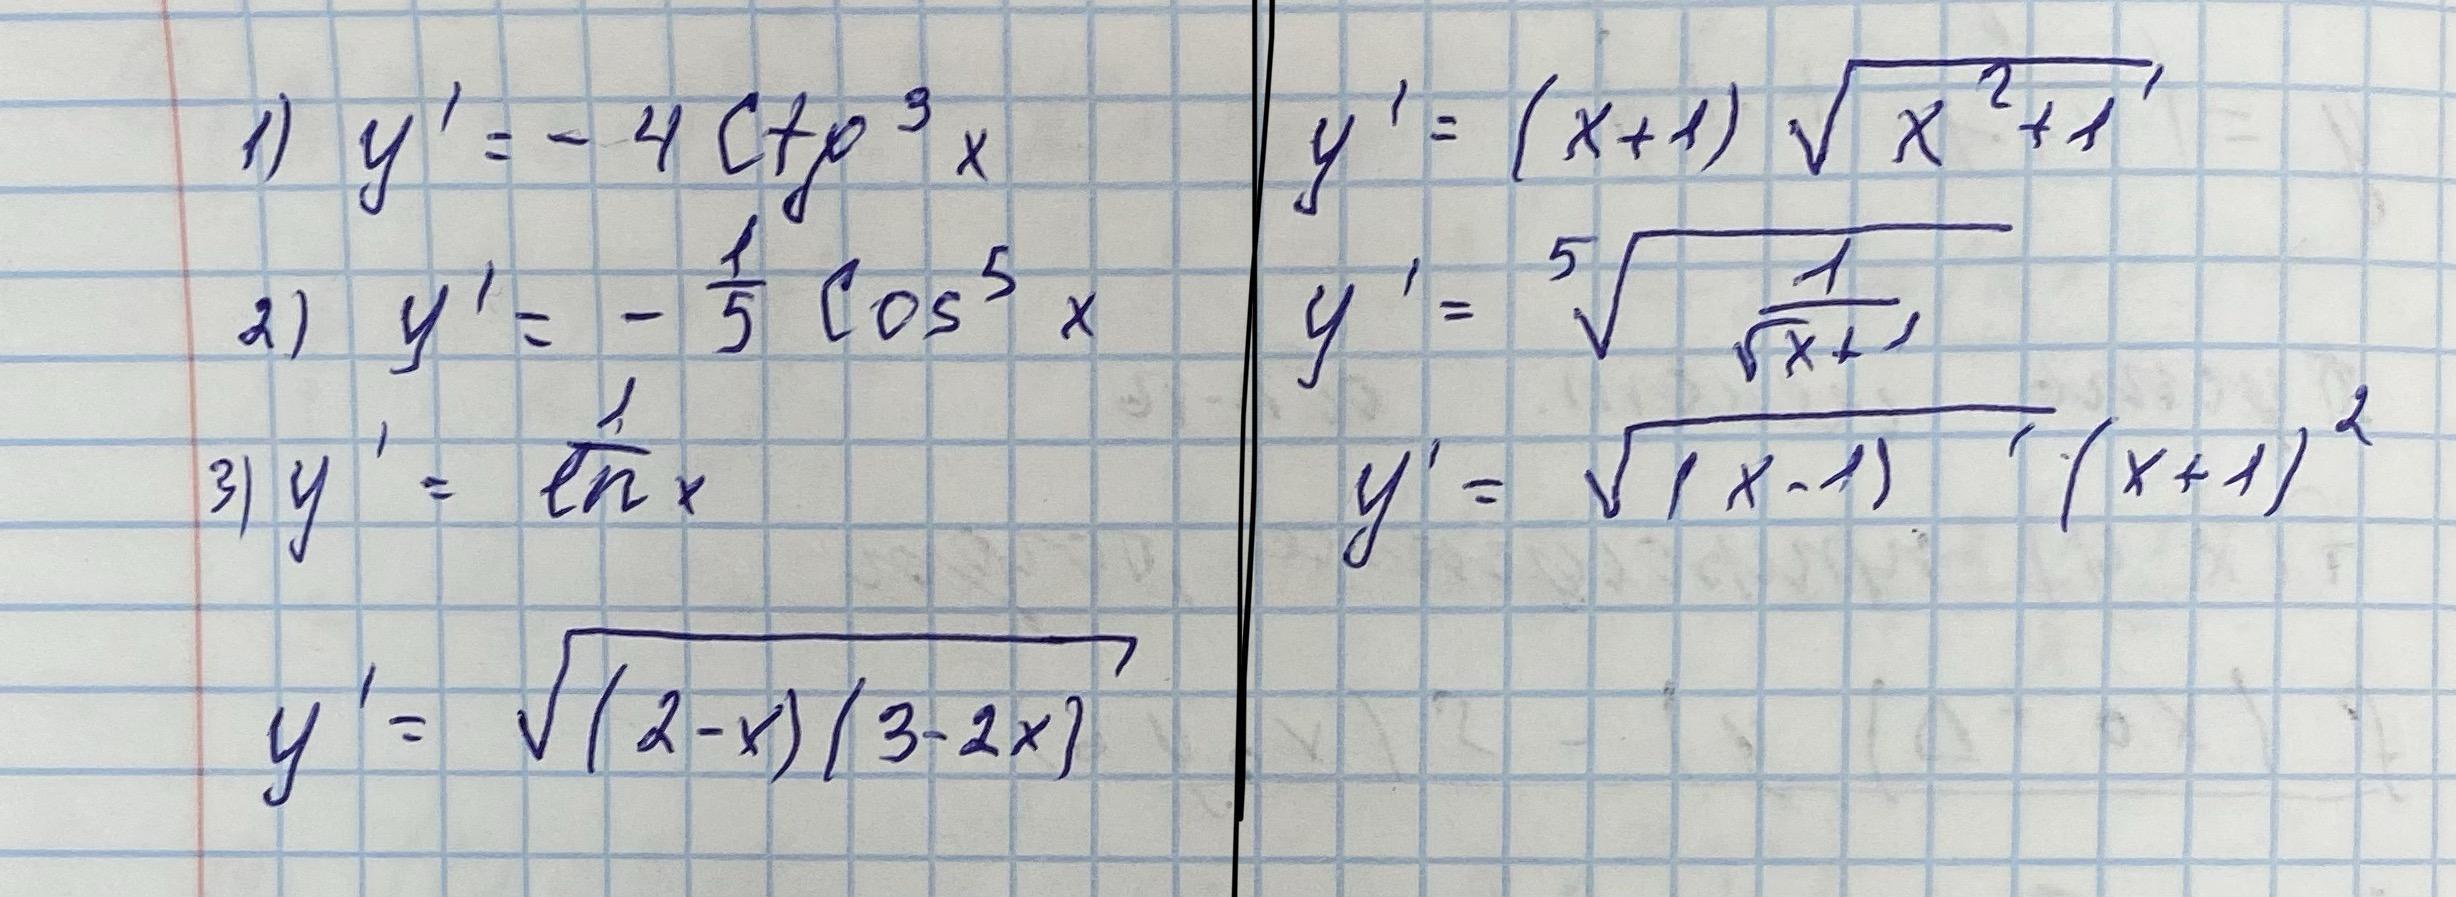 1) y' = - 4 Ctg³ x
2) y' = - 1/5 Cos⁵ x
3) y' = 1/ln x
y' = √((2-x)(3-2x))
y' = (x+1) √(x²+1)
y' = ⁵√(1/(√x+1))
y' = √(x-1) (x+1)²